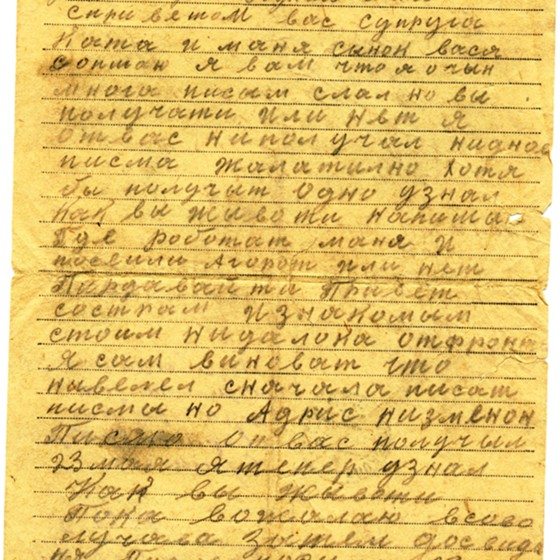 с приветом вас супруга
Ката и маня сынок вася
я вам что я очын
многа писым слал но вы
получати или нет я
от вас ни получал ниднов
писма жалатилно хотя
бы получыт одно узнал
как вы жывоти напиши
где роботат маня и
посеили агорот или нет
Пирдавайти Привет
сострам и знакомым
стоим нидалока отфронт
Я сам виноват что
невелел сначала писат
писмы но Адрис низменон
Писмо от вас получыл
23 мая я тепер узнал
Как вы жывоти
Пока вожалаю всево
случева затем досвид